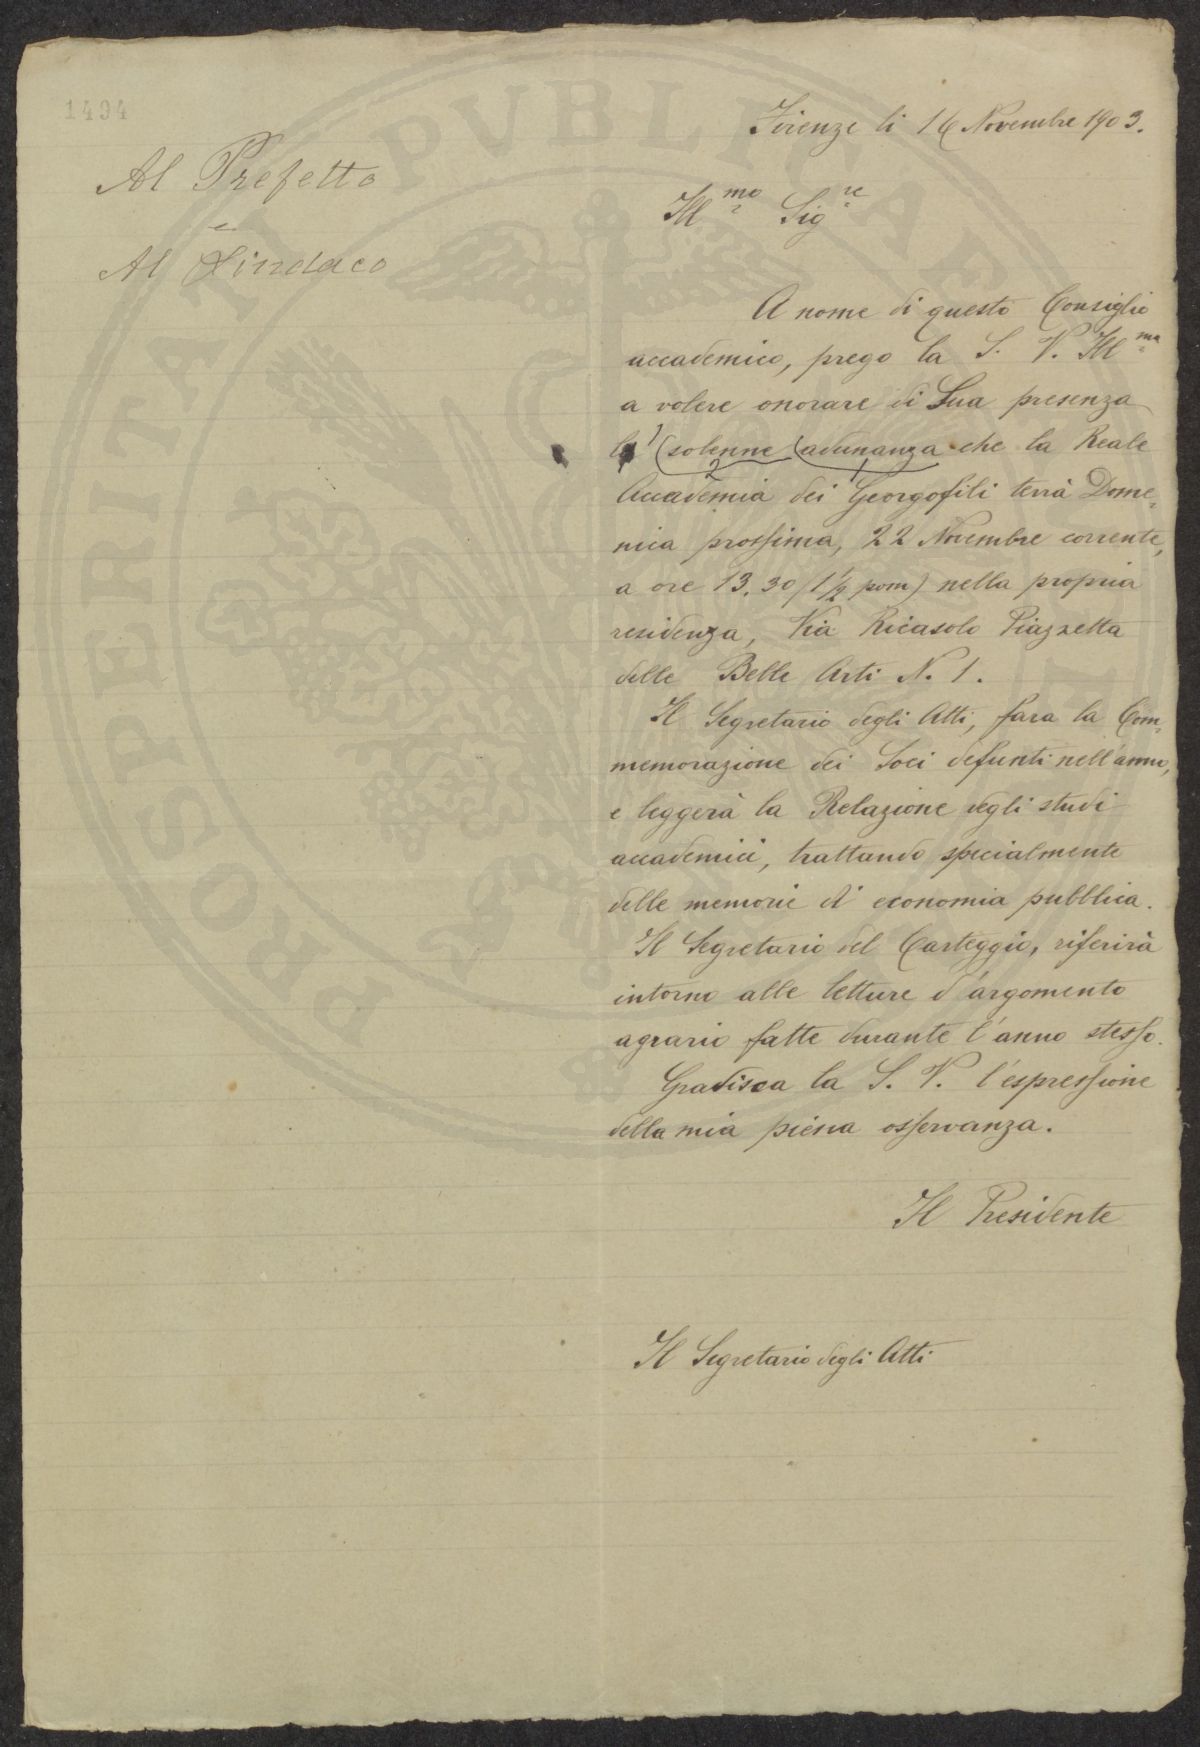 1494
Firenze li 16 Novembre 1903.
Al Prefetto
e
Al Sindaco
Ill.mo Sig.re
A nome di questo Consiglio
accademico, prego la S. V. Ill.ma
a volere onorare di Sua presenza
l' (solenne (adunanza che la Reale
2 1
Accademia dei Georgofili terrà Dome-
nica prossima, 22 Novembre corrente,
a ore 13.30 (1 1/2 pom) nella propria
residenza, Via Ricasolo Piazzetta
delle Belle Arti N. 1.
Il Segretario degli Atti, fara la Com-
memorazione dei Soci defunti nell'anno,
e leggerà la Relazione degli studi
accademici, trattando specialmente
delle memorie di economia pubblica.
Il Segretario del Carteggio, riferirà
intorno alle letture d'argomento
agrario fatte durante l'anno stesso.
Gradisca la S. V. l'espressione
della mia piena osservanza.
Il Presidente
Il Segretario degli Atti